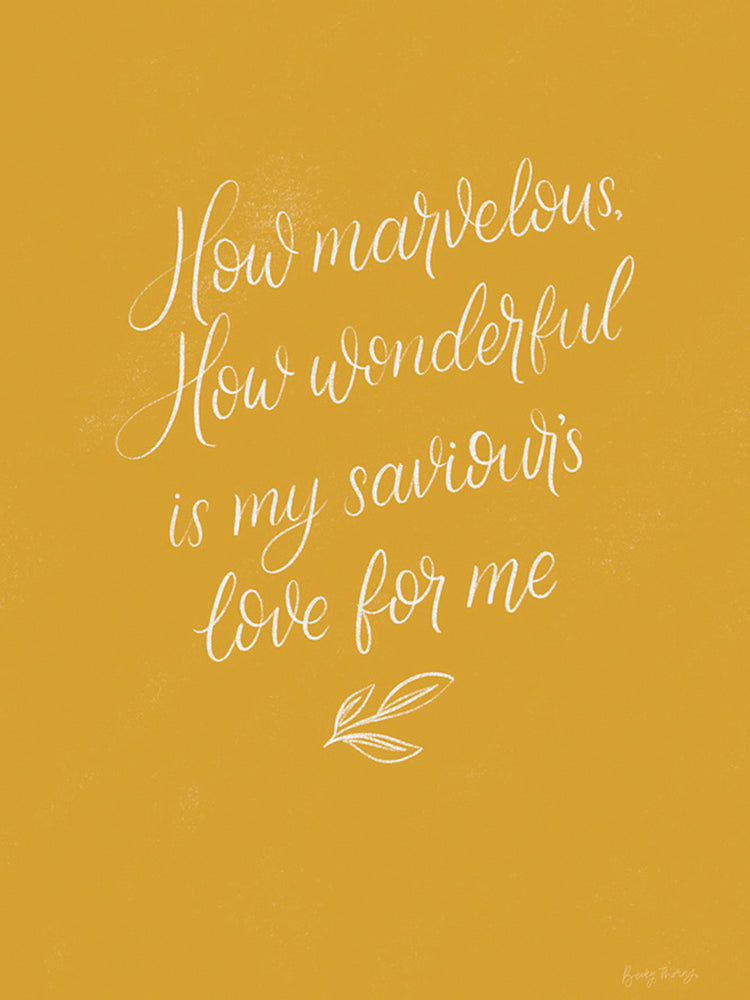 How marvelous,
How wonderful
is my saviour's
love for me